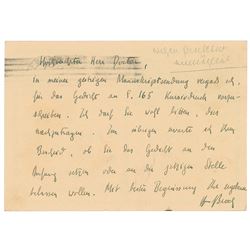 Herr Doctor,
in meiner gestrigen Manuskriptsendung vergaß ich,
für das Gedicht auf S. 165 Kursivdruck vorzu-
schreiben. Ich darf Sie wohl bitten, dies
nachzuholen. Im übrigen warte ich Ihren
Bescheid, ob Sie das Gedicht an den
Anfang setzen oder an die jetzigen Stelle
belassen wollen. Mit besten Begrüssung Ihr ergebener
Broch